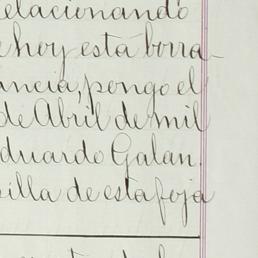 relacionando
e hoy está borra-
ancia, pongo el
de Abril de mil
Eduardo Galan.
silla de esta foja